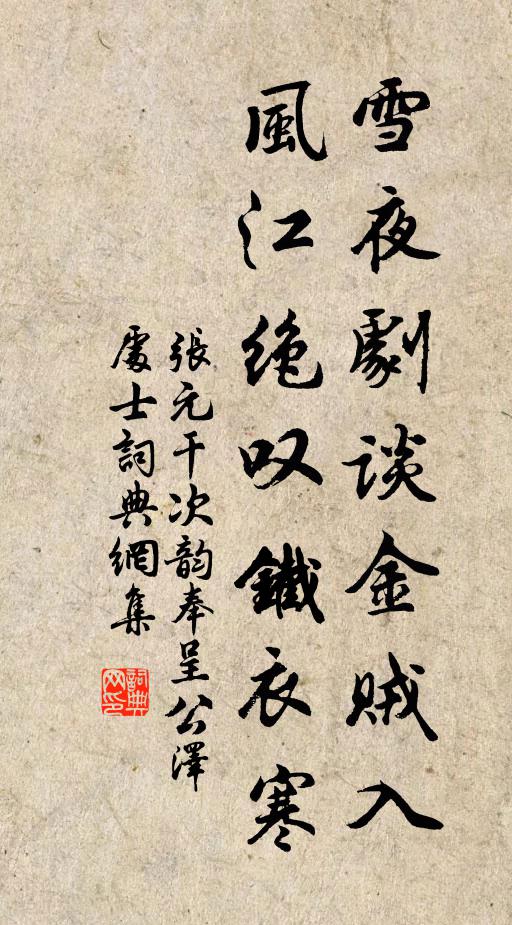 雪夜劇談金賊入
風江絶叹鐵衣寒
張元干次韵奉呈公澤
處士詞典網集
詞典网印